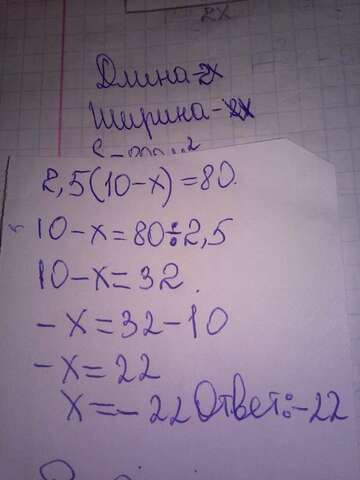 2x
Длина-2x
Ширина-
2,5(10-x)=80.
10-x=80÷2,5
10-x=32.
-x=32-10
-x=22
x=-22 Ответ:-22